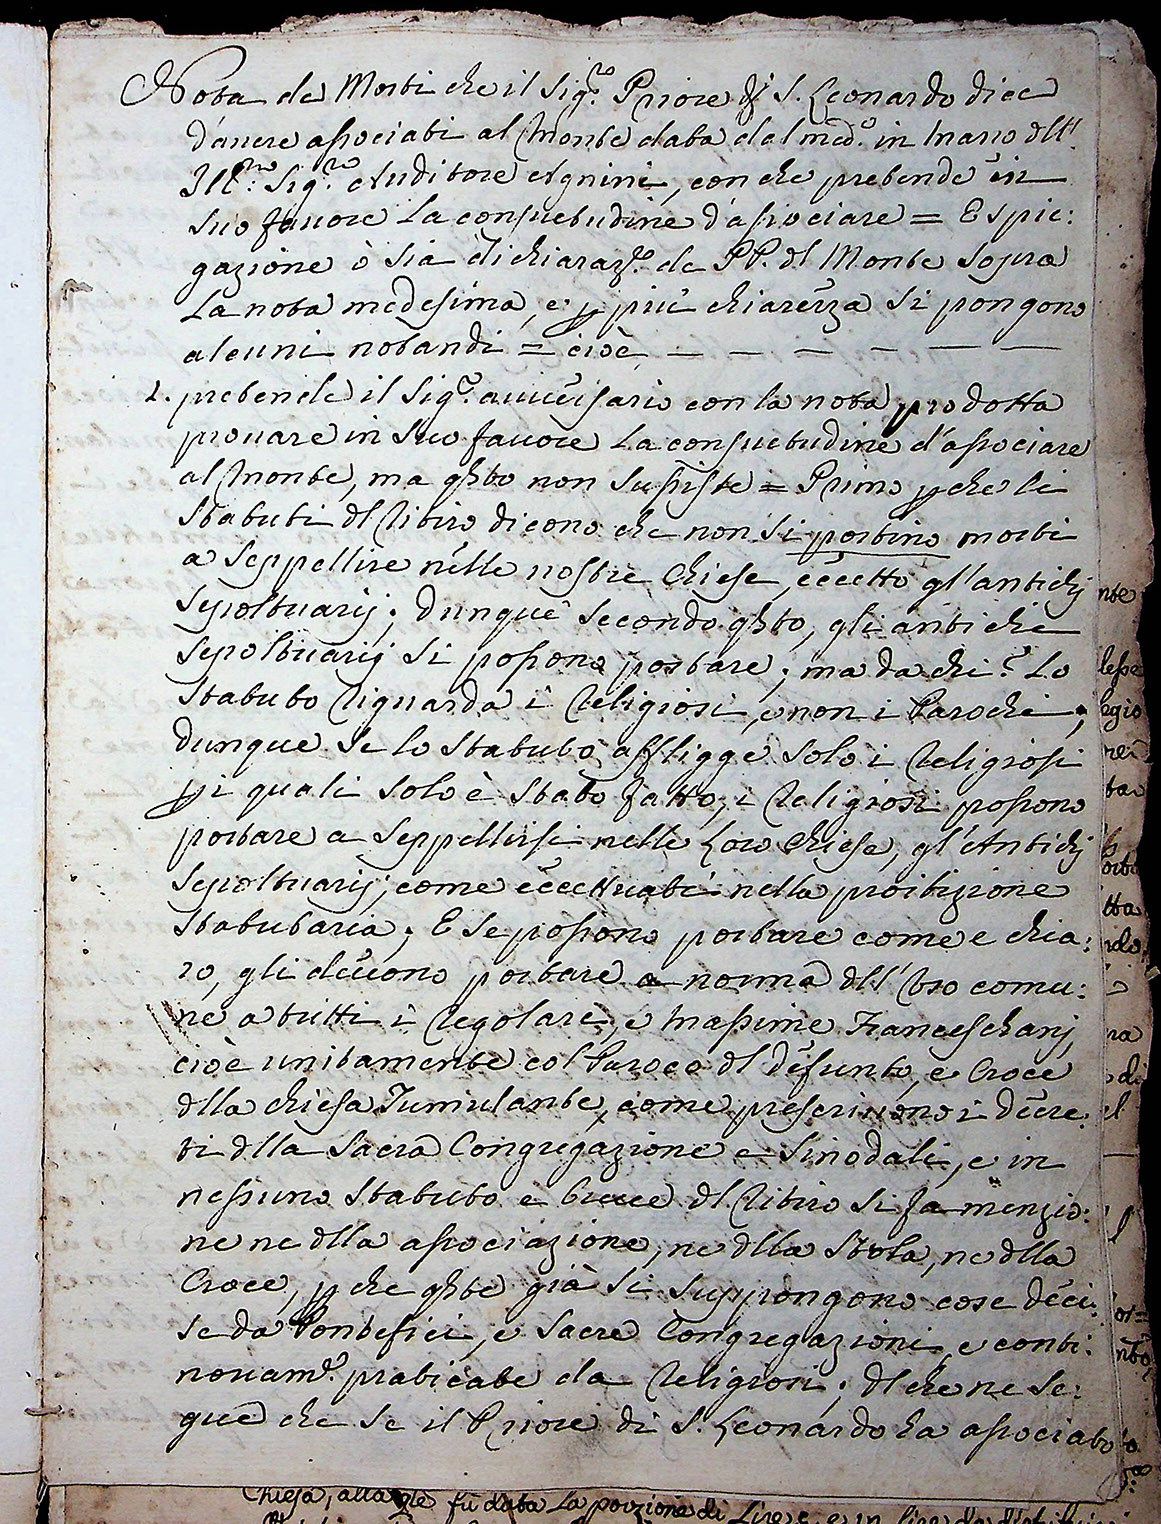 Nota de Morti che il Sig.re Priore di S. Leonardo dice
d'avere associati al Monte data dal med.o in mano dll'
Ill.mo Sig.re Auditore Agnini, con che pretende in
suo favore la consuetudine d'associare = E spie:
gazione ò sia dichiaraz.e de PP. dl Monte sopra
la nota medesima, e p più chiarezza si pongono
alcuni notandi = cioè — — — — — —
1. pretende il Sig.r avversario con la nota prodotta
provare in suo favore la consuetudine d'associare
al Monte, ma qsto non sussiste = Primo pche li
Statuti dl Ritiro dicono che non si portino morti
a seppellire nelle nostre Chiese, eccetto gl'antichi
sepoltuarij; dunque secondo qsto, gli antichi
sepoltuarij si possono portare; ma da chi? Lo
Statuto riguarda i Religiosi, e non i Parochi;
dunque se lo Statuto affligge solo i Religiosi
p i quali solo è stato fatto, i Religiosi possono
portare a seppellirsi nelle loro Chiese, gl'Antichi
sepoltuarij, come eccettuati nella proibizione
Statutaria; E se possono portare come e chia:
ro, gli devono portare a norma dll'Uso comu:
ne a tutti i Regolari, e massime Franceschani,
cioè unitamente col Paroco dl defunto, e Croce
dlla Chiesa Tumulante, come prescrivono i decre
ti dlla Sacra Congregazione e Sinodali, e in
nessuno Statuto e Breve dl Ritiro si fa menzio:
ne ne dlla associazione, ne dlla Stola, ne dlla
Croce, p che qste già si suppongono cose deci:
se da Pontefici, e Sacre Congregazioni, e conti:
novam.e praticate da Religiosi; dl che ne se:
gue che se il Priore di S. Leonardo ha associato
Chiesa, alla qle fù data la porzione di Lire